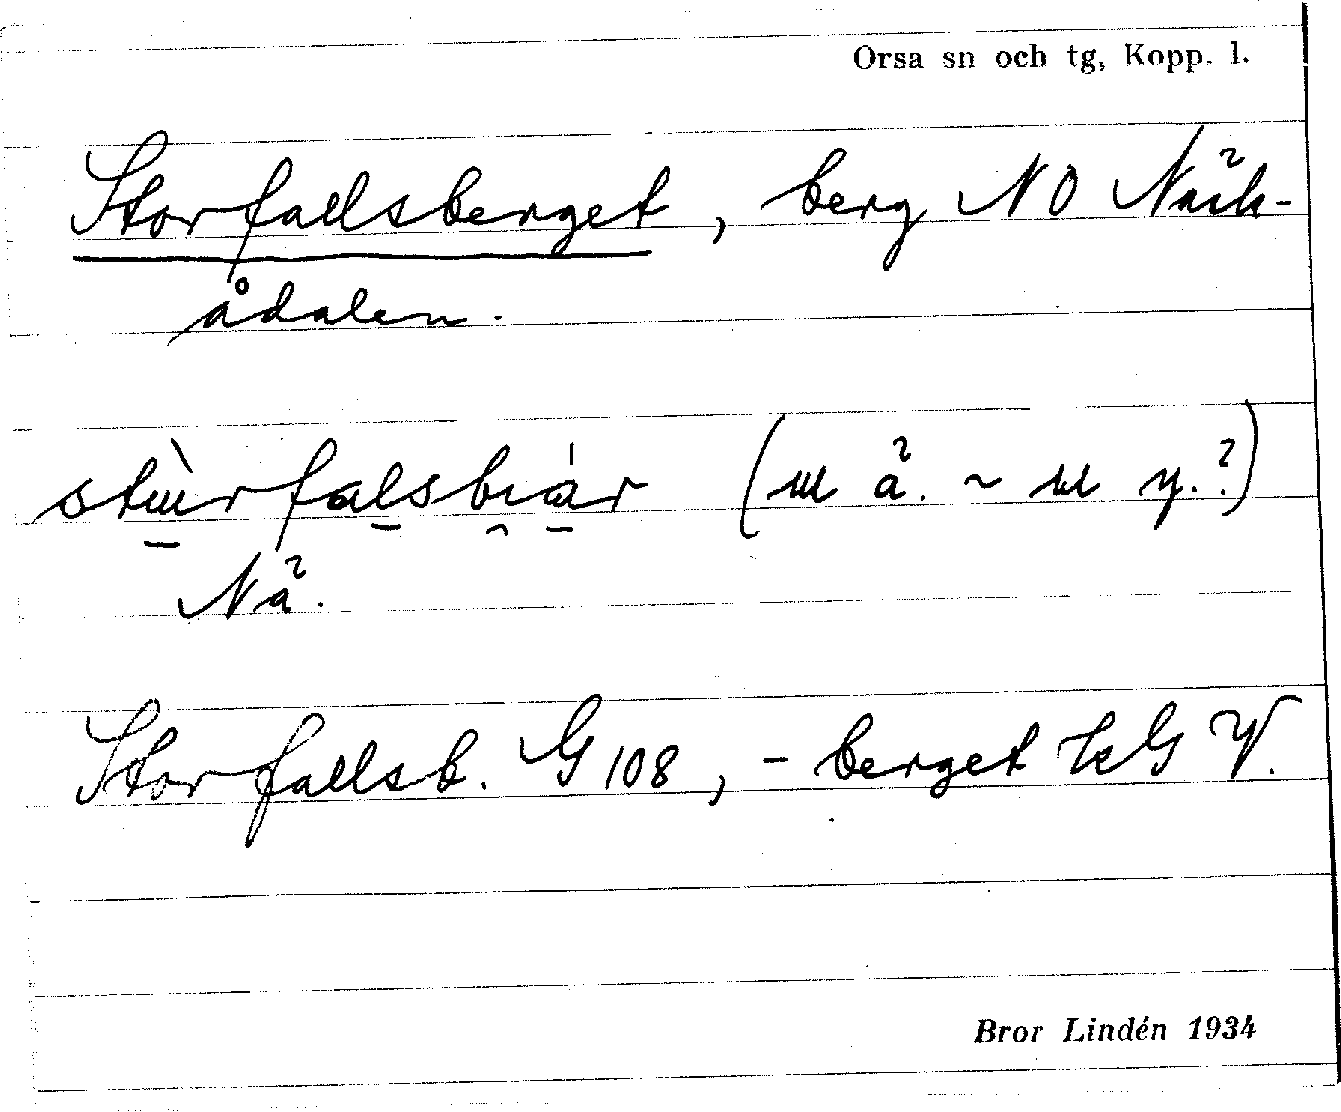 Orsa sn och tg, Kopp. l.
Storfallsberget, berg NO Näck-
ådalen.
stùrfalsbiár (ɯ å. ~ ɯ y.?)
Nä.
Storfallsb. G 108, - berget kG V.
Bror Lindén 1934